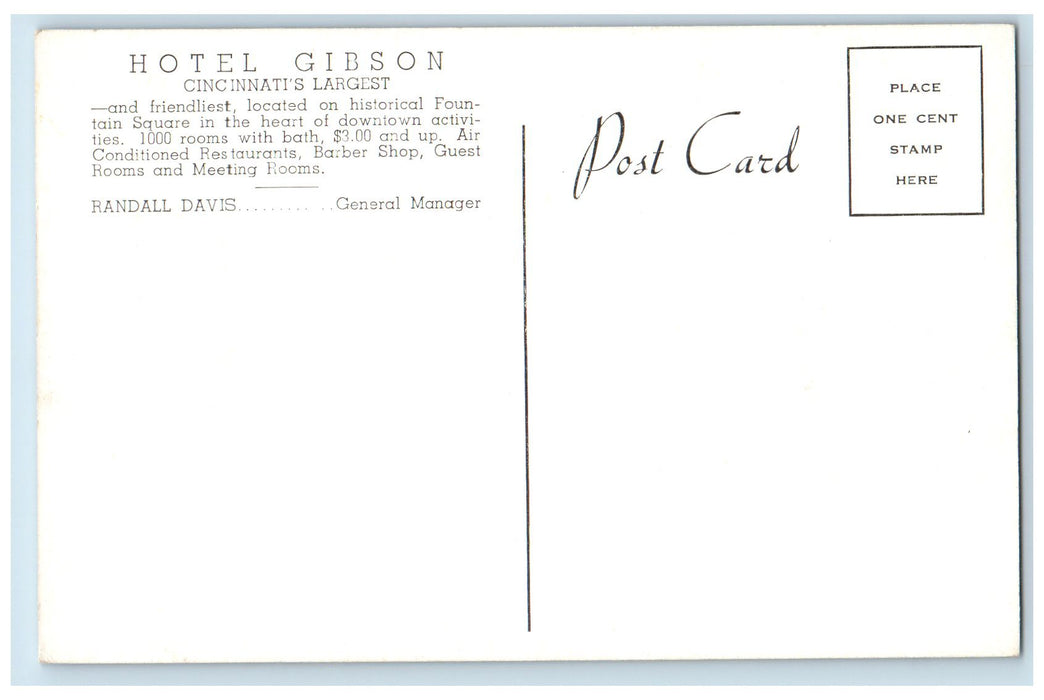 HOTEL GIBSON
CINCINNATI'S LARGEST
—and friendliest, located on historical Foun-
tain Square in the heart of downtown activi-
ties. 1000 rooms with bath, $3.00 and up. Air
Conditioned Restaurants, Barber Shop, Guest
Rooms and Meeting Rooms.
RANDALL DAVIS............General Manager
Post Card
PLACE
ONE CENT
STAMP
HERE